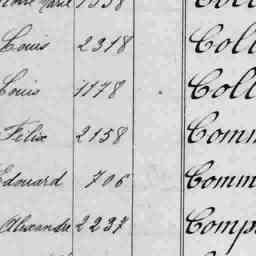 Louis 2318 Coll
Louis 1178 Coll
Felix 2158 Comm
Edouard 706 Comm
Alexandre 2237 Comp